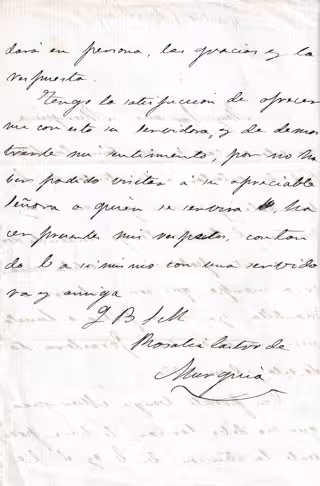 dará en persona, las gracias y la
respuesta.
Tengo la satisfaccion de ofrecer
me con esto su servidora, y de demos
trarle mi sentimiento, por no ha
ber podido visitar á su apreciable
señora a quien se servira ha
cer presente mis respetos, contan
do le a si mismo con una servido
ra y amiga
Q B S M
Rosalia Castro de
Murguia